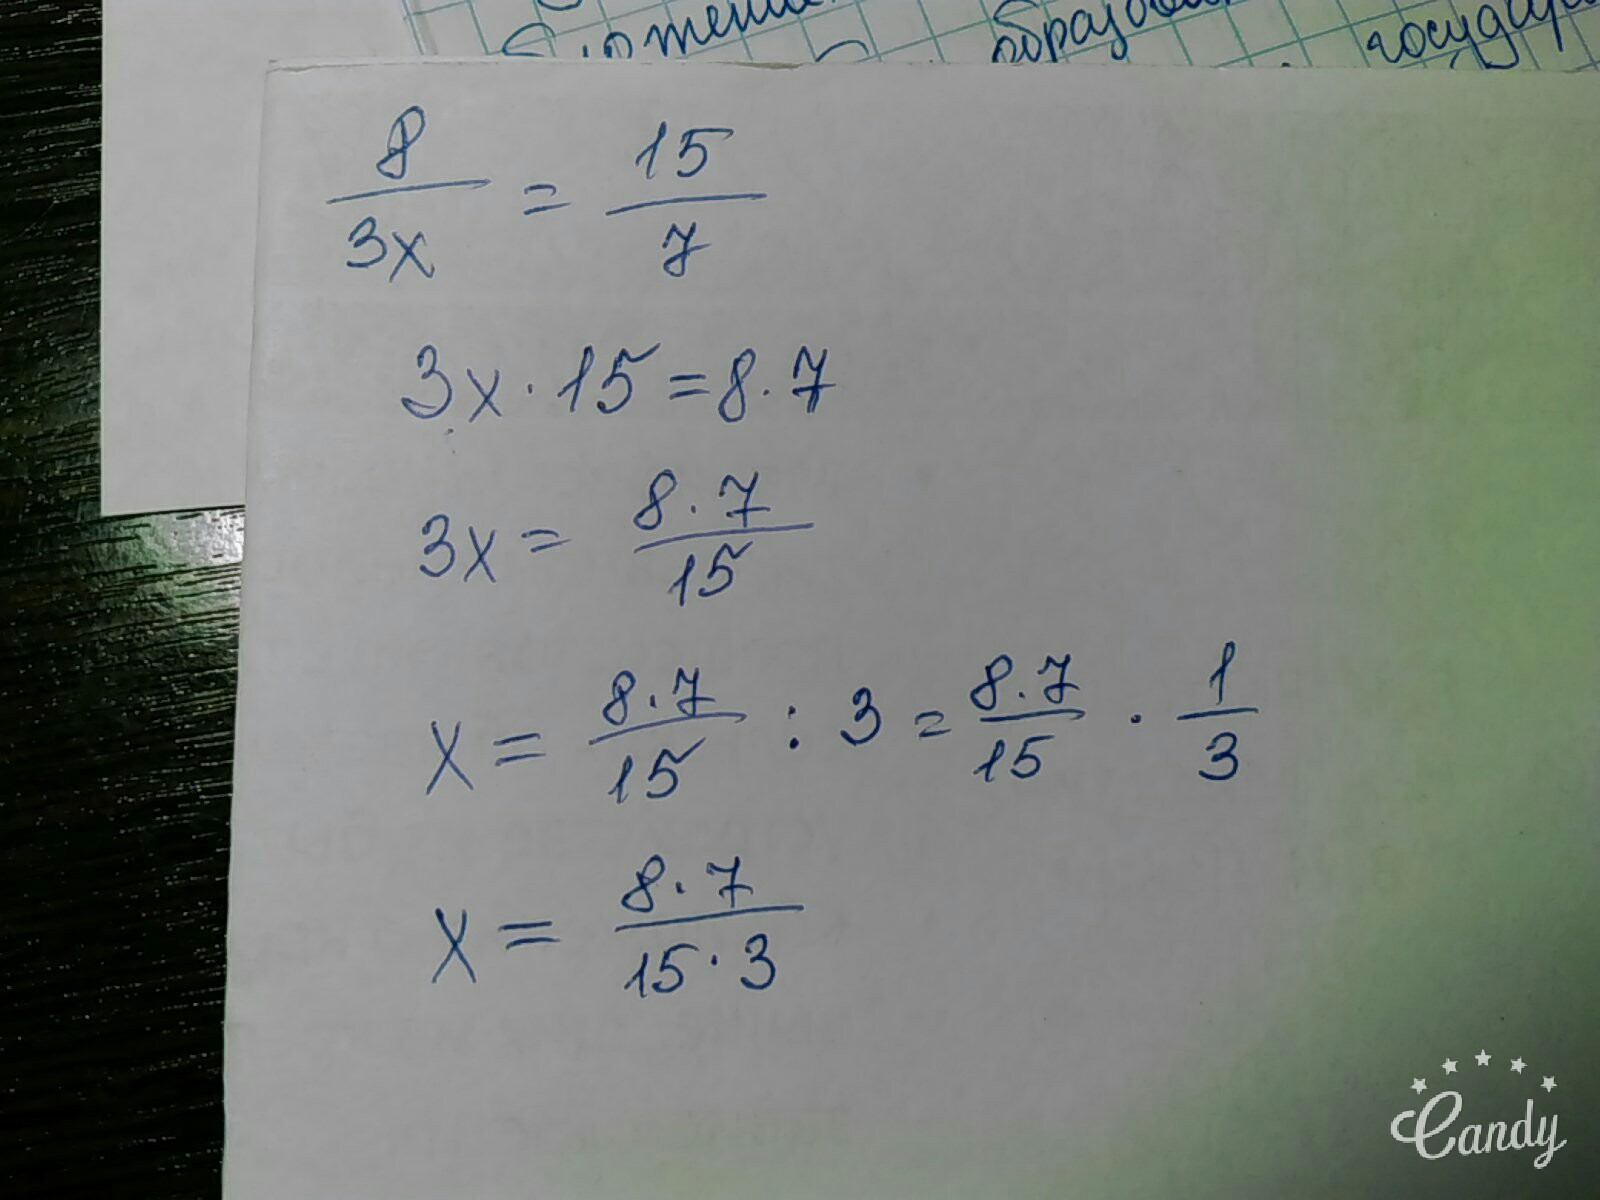 образов
государ
8/3x = 15/7
3x · 15 = 8 · 7
3x = 8 · 7/15
x = 8 · 7/15 : 3 = 8 · 7/15 · 1/3
x = 8 · 7/15 · 3
Candy